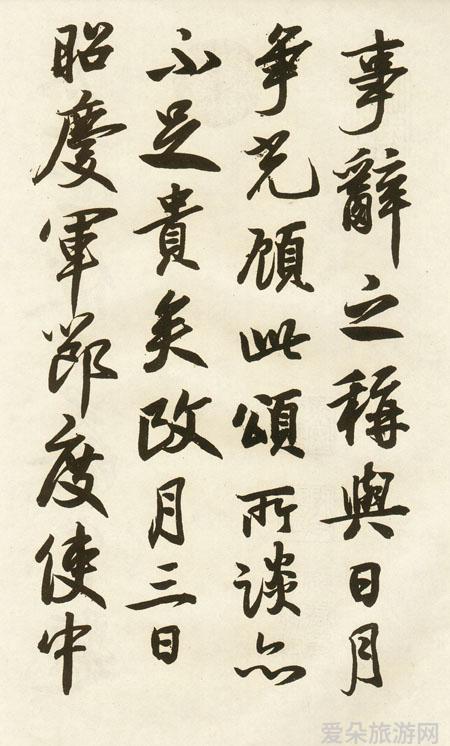 事辭之稱與日月
爭光顧此頌所談亦
不足貴矣政月三日
昭慶軍節度使中
爱朵旅游网